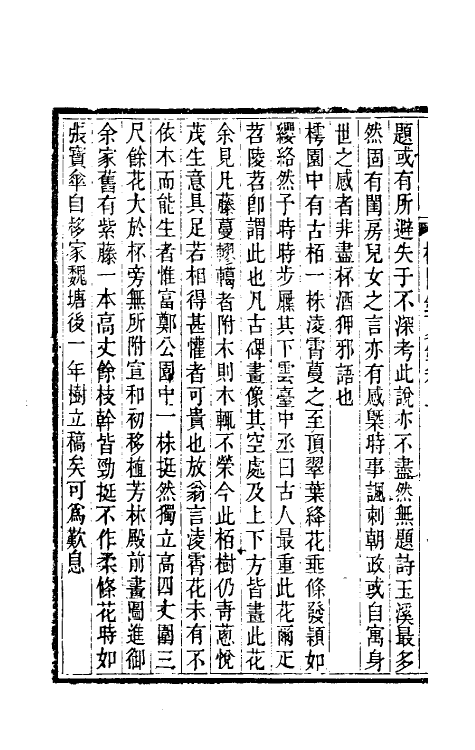 題或有所避失于不深考此說亦不盡然無題詩玉溪最多
然固有閨房兒女之言亦有感槩時事諷刺朝政或自寓身
世之感者非盡杯酒狎邪語也
樗園中有古栢一株淩霄蔓之至頂翠葉絳花垂條發穎如
纓絡然予時時步屧其下雲臺中丞曰古人最重此花爾疋
苕陵苕卽謂此也凡古碑畫像其空處及上下方皆畫此花
余見凡藤蔓轇轕者附木則木輒不榮今此栢樹仍靑蔥悅
茂生意具足若相得甚懽者可貴也放翁言淩霄花未有不
依木而能生者惟富鄭公園中一株挺然獨立高四丈圍三
尺餘花大於杯旁無所附宣和初移植芳林殿前畫圖進御
余家舊有紫藤一本高丈餘枝幹皆勁挺不作柔條花時如
張寶傘自移家魏塘後一年樹立稿矣可爲歎息